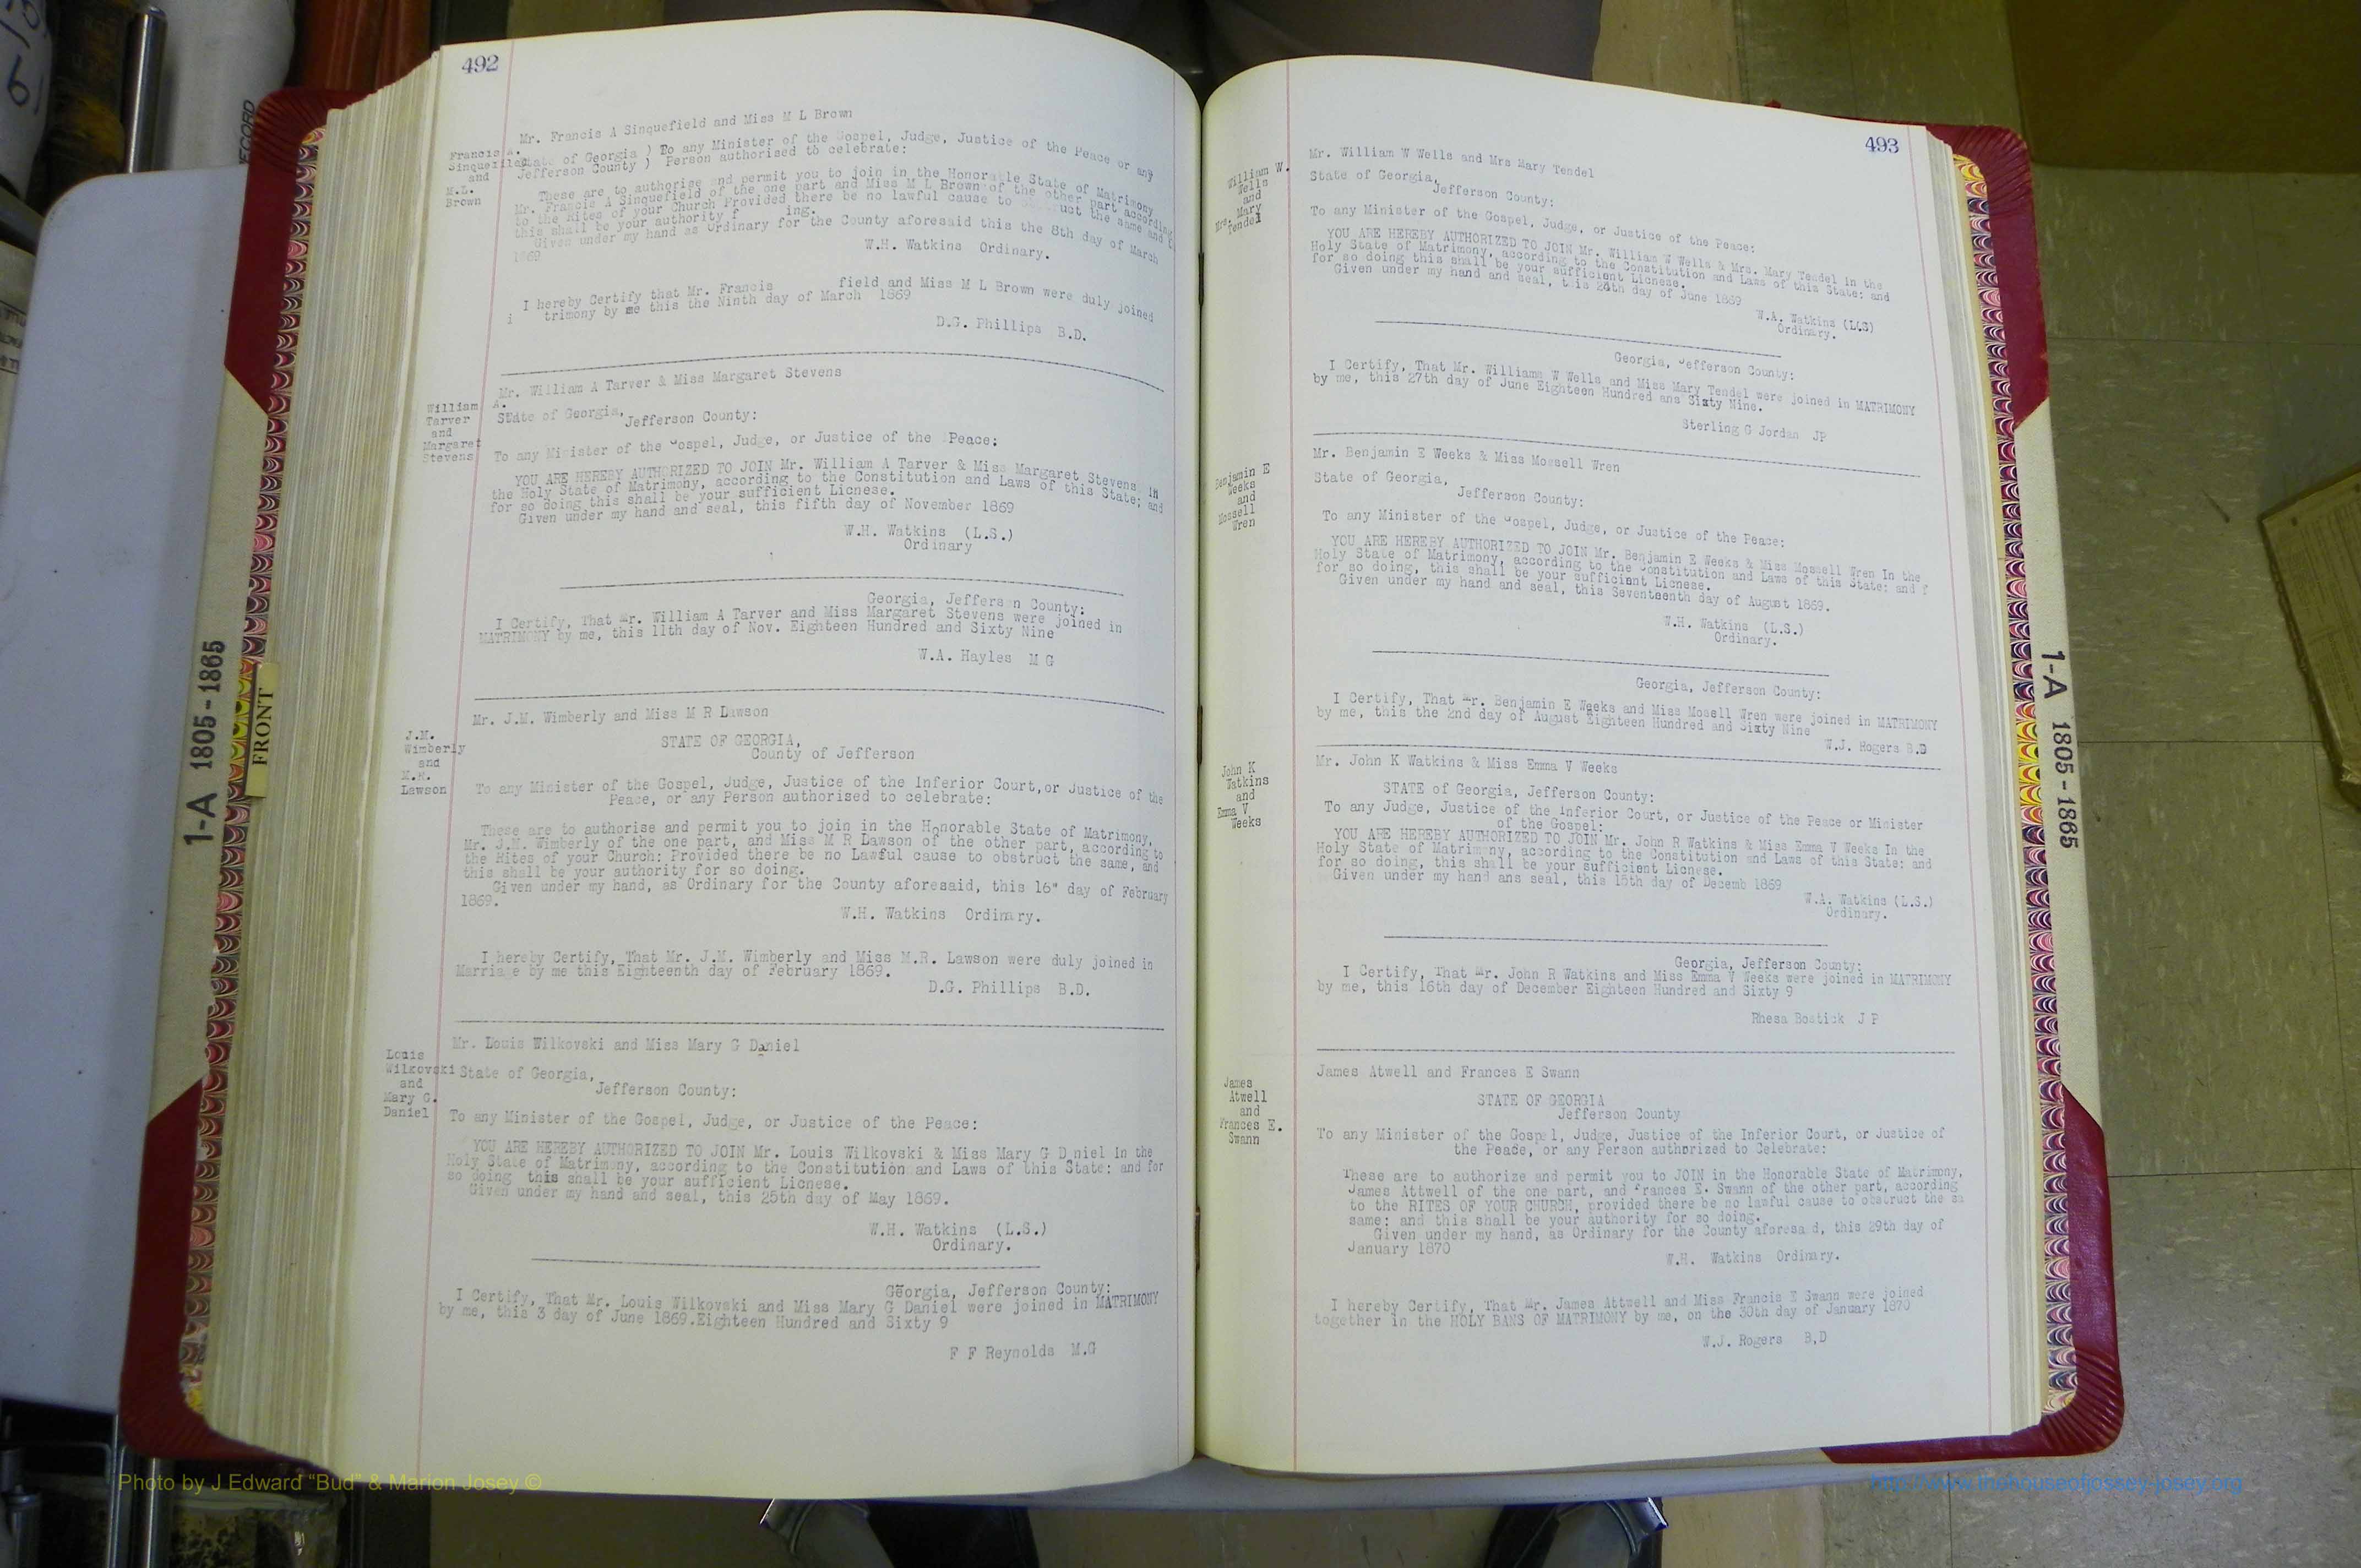 492
Mr. Francis A Sinquefield and Miss M L Brown
Francis A.
Sinquefiled
and
M.L.
Brown
State of Georgia ) To any Minister of the Gospel, Judge, Justice of the Peace or any
Jefferson County ) Person authorised to celebrate:
These are to authorise and permit you to join in the Honorable State of Matrimony
Mr. Francis A Sinquefield of the one part and Miss M L Brown of the other part according
to the Rites of your Church Provided there be no lawful cause to uct the same and
this shall be your authority f ing.
Given under my hand as Ordinary for the County aforesaid this the 8th day of March
1869
W.H. Watkins Ordinary.
I hereby Certify that Mr. Francis field and Miss M L Brown were duly joined
i trimony by me this the Ninth day of March 1869
D.G. Phillips B.D.
Mr. William A Tarver & Miss Margaret Stevens
William A.
Tarver
and
Margaret
Stevens
State of Georgia,
Jefferson County:
To any Minister of the Gospel, Judge, or Justice of the Peace:
YOU ARE HEREBY AUTHORIZED TO JOIN Mr. William A Tarver & Miss Margaret Stevens IN
the Holy State of Matrimony, according to the Constitution and Laws of this State; and
for so doing this shall be your sufficient Licnese.
Given under my hand and seal, this fifth day of November 1869
W.H. Watkins (L.S.)
Ordinary
Georgia, Jefferson County:
I Certify, That Mr. William A Tarver and Miss Margaret Stevens were joined in
MATRIMONY by me, this 11th day of Nov. Eighteen Hundred and Sixty Nine
W.A. Hayles M G
Mr. J.M. Wimberly and Miss M R Lawson
J.M.
Wimberly
and
M.R.
Lawson
STATE OF GEORGIA,
County of Jefferson
To any Minister of the Gospel, Judge, Justice of the Inferior Court,or Justice of the
Peace, or any Person authorised to celebrate:
These are to authorise and permit you to join in the Honorable State of Matrimony,
Mr. J.M. Wimberly of the one part, and Miss M R Lawson of the other part, according to
the Rites of your Church: Provided there be no Lawful cause to obstruct the same, and
this shall be your authority for so doing.
Given under my hand, as Ordinary for the County aforesaid, this 16" day of February
1869.
W.H. Watkins Ordinary.
I hereby Certify, That Mr. J.M. Wimberly and Miss M.R. Lawson were duly joined in
Marriage by me this Eighteenth day of February 1869.
D.G. Phillips B.D.
Mr. Louis Wilkovski and Miss Mary G Daniel
Louis
Wilkovski
and
Mary G.
Daniel
State of Georgia,
Jefferson County:
To any Minister of the Gospel, Judge, or Justice of the Peace:
YOU ARE HEREBY AUTHORIZED TO JOIN Mr. Louis Wilkovski & Miss Mary G D niel In the
Holy State of Matrimony, according to the Constitution and Laws of this State: and for
so doing this shall be your sufficient Licnese.
Given under my hand and seal, this 25th day of May 1869.
W.H. Watkins (L.S.)
Ordinary.
Georgia, Jefferson County:
I Certify, That Mr. Louis Wilkovski and Miss Mary G Daniel were joined in MATRIMONY
by me, this 3 day of June 1869.Eighteen Hundred and Sixty 9
F F Reynolds M.G
493
Mr. William W Wells and Mrs Mary Tendel
William W.
Wells
and
Mrs. Mary
Tendel
State of Georgia,
Jefferson County:
To any Minister of the Gospel, Judge, or Justice of the Peace:
YOU ARE HEREBY AUTHORIZED TO JOIN Mr. William W Wells & Mrs. Mary Tendel In the
Holy State of Matrimony, according to the Constitution and Laws of this State: and
for so doing this shall be your sufficient Licnese.
Given under my hand and seal, this 26th day of June 1869
W.A. Watkins (L.S)
Ordinary.
Georgia, Jefferson County:
I Certify, That Mr. Williams W Wells and Miss Mary Tendel were joined in MATRIMONY
by me, this 27th day of June Eighteen Hundred ans Sixty Nine.
Sterling G Jordan JP
Mr. Benjamin E Weeks & Miss Mossell Wren
Benjamin E
Weeks
and
Mossell
Wren
State of Georgia,
Jefferson County:
To any Minister of the Gospel, Judge, or Justice of the Peace:
YOU ARE HEREBY AUTHORIZED TO JOIN Mr. Benjamin E Weeks & Miss Mossell Wren In the
Holy State of Matrimony, according to the Constitution and Laws of this State: and f
for so doing, this shall be your sufficient Licnese.
Given under my hand and seal, this Seventeenth day of August 1869.
W.H. Watkins (L.S.)
Ordinary.
Georgia, Jefferson County:
I Certify, That Mr. Benjamin E Weeks and Miss Mosell Wren were joined in MATRIMONY
by me, this the 2nd day of August Eighteen Hundred and Sixty Nine
W.J. Rogers B.D
Mr. John K Watkins & Miss Emma V Weeks
John K
Watkins
and
Emma V
Weeks
STATE of Georgia, Jefferson County:
To any Judge, Justice of the Inferior Court, or Justice of the Peace or Minister
of the Gospel:
YOU ARE HEREBY AUTHORIZED TO JOIN Mr. John R Watkins & Miss Emma V Weeks In the
Holy State of Matrimony, according to the Constitution and Laws of this State: and
for so doing, this shall be your sufficient Licnese.
Given under my hand ans seal, this 15th day of Decemb 1869
W.A. Watkins (L.S.)
Ordinary.
Georgia, Jefferson County:
I Certify, That Mr. John R Watkins and Miss Emma V Weeks were joined in MATRIMONY
by me, this 16th day of December Eighteen Hundred and Sixty 9
Rhesa Bostick J P
James Atwell and Frances E Swann
James
Atwell
and
Frances E.
Swann
STATE OF GEORGIA
Jefferson County
To any Minister of the Gospel, Judge, Justice of the Inferior Court, or Justice of
the Peace, or any Person authorized to Celebrate:
These are to authorize and permit you to JOIN in the Honorable State of Matrimony,
James Attwell of the one part, and Frances E. Swann of the other part, according
to the RITES OF YOUR CHURCH, provided there be no lawful cause to obstruct the sa
same: and this shall be your authority for so doing.
Given under my hand, as Ordinary for the County aforesa d, this 29th day of
January 1870
W.H. Watkins Ordinary.
I hereby Certify, That Mr. James Attwell and Miss Francis E Swann were joined
together in the HOLY BANS OF MATRIMONY by me, on the 30th day of January 1870
W.J. Rogers B,D
1-A 1805-1865
FRONT
1-A 1805-1865
ECORD
Photo by J Edward “Bud” & Marion Josey ©
http://www.thehouseofjossey-josey.org